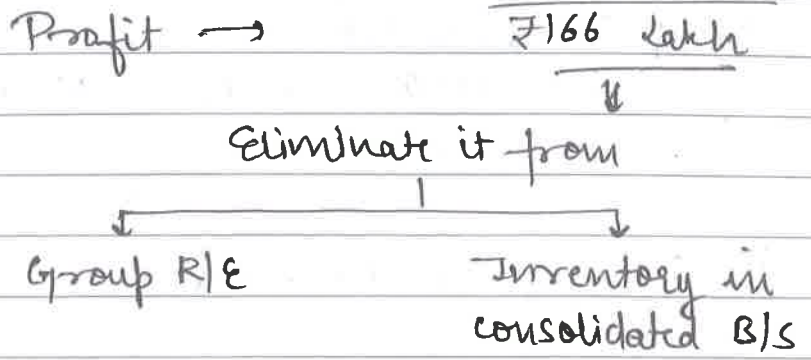 Profit → ₹166 Lakh
Eliminate it from
Group R/E Inventory in
consolidated B/S